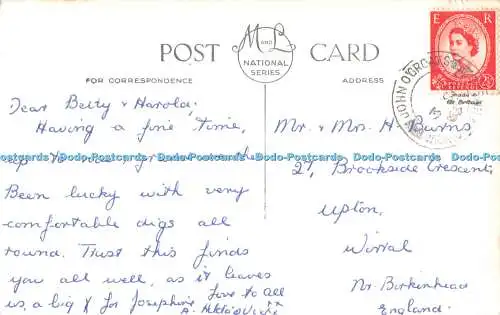 POST CARD
M and L
NATIONAL
SERIES
FOR CORRESPONDENCE
ADDRESS
E R
2½
JOHN O'GROATS
Dear Betty & Harold,
Having a fine time,
up to
Been lucky with very
comfortable digs all
round. Trust this finds
you all well, as it leaves
us, a big X for Josephine
Love to all
Mr. & Mrs. H. Burns
27, Brookside Crescent,
Upton,
Wirral
Nr. Birkinhead
England.
Dodo-Postcards Dodo-Postcards Dodo-Postcards Dodo-Postcards Dodo-Postcards Dodo-Postcards